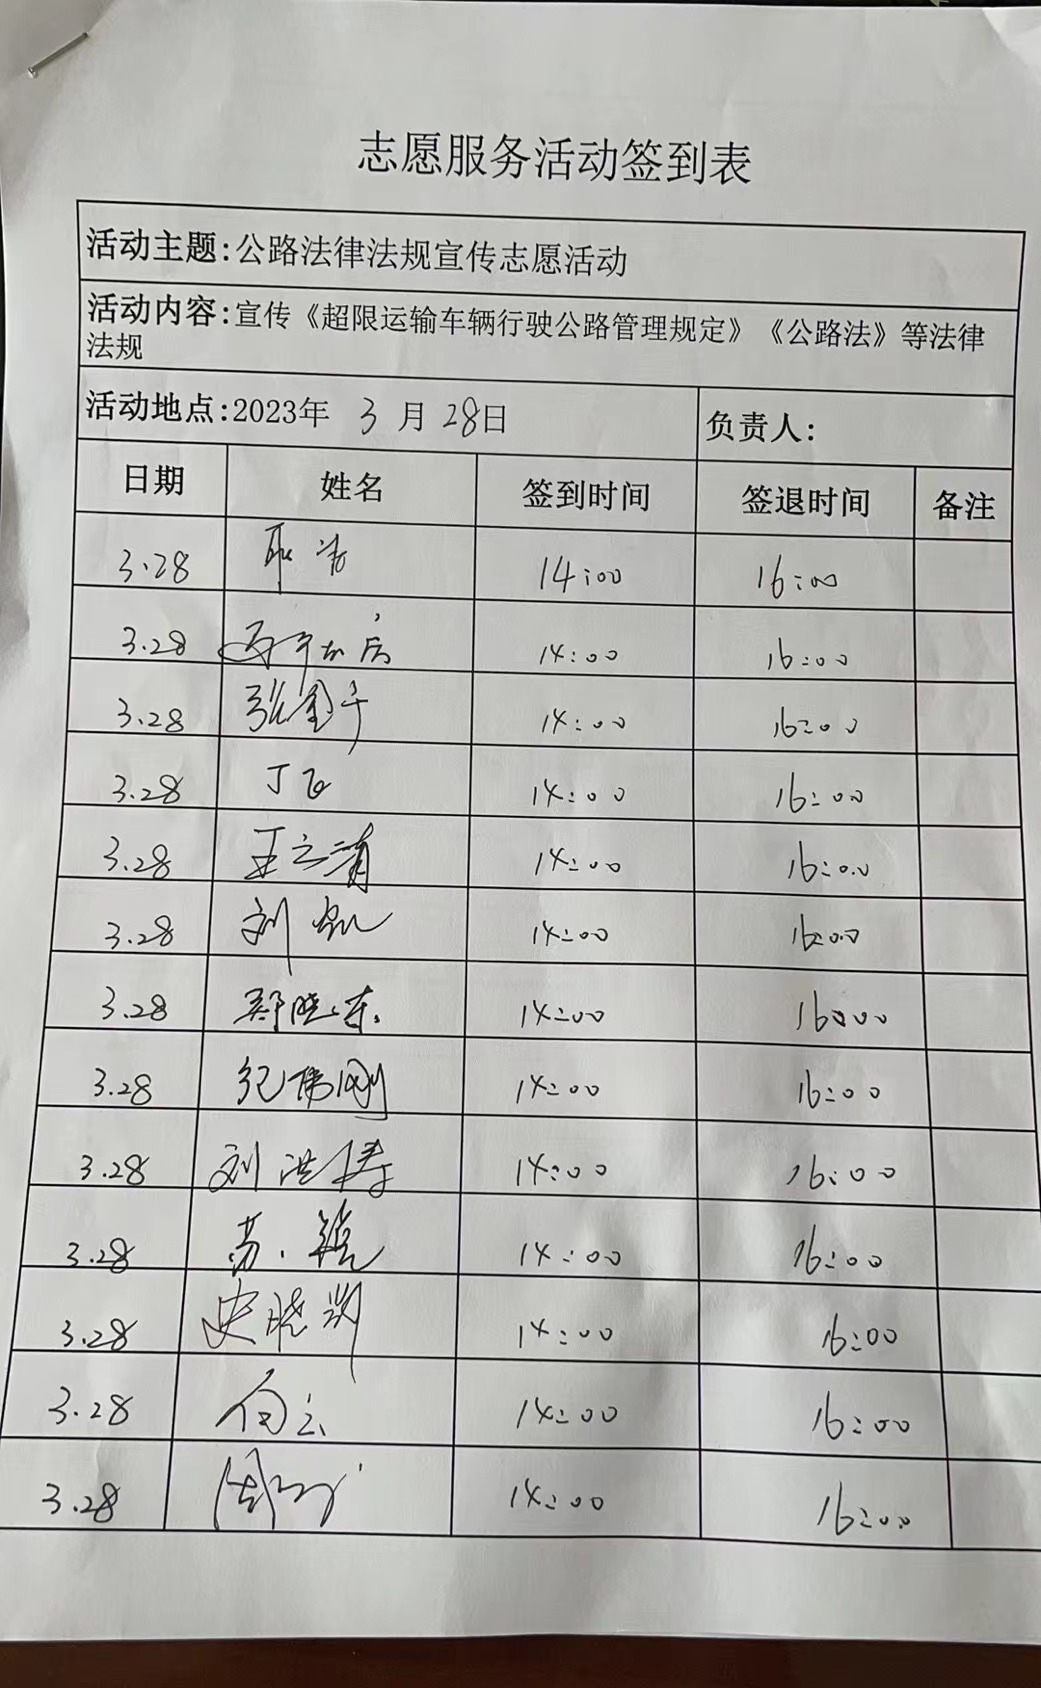 志愿服务活动签到表
活动主题:公路法律法规宣传志愿活动
活动内容:宣传《超限运输车辆行驶公路管理规定》《公路法》等法律
法规
活动地点:2023年 3月28日 负责人:
日期 姓名 签到时间 签退时间 备注
3.28 14:00 16:00
3.28 14:00 16:00
3.28 张金千 14:00 16:00
3.28 丁飞 14:00 16:00
3.28 王立清 14:00 16:00
3.28 刘凯 14:00 16:00
3.28 郑晓东 14:00 16:00
3.28 纪伟刚 14:00 16:00
3.28 刘洪涛 14:00 16:00
3.28 14:00 16:00
3.28 史晓 14:00 16:00
3.28 白云 14:00 16:00
3.28 14:00 16:00